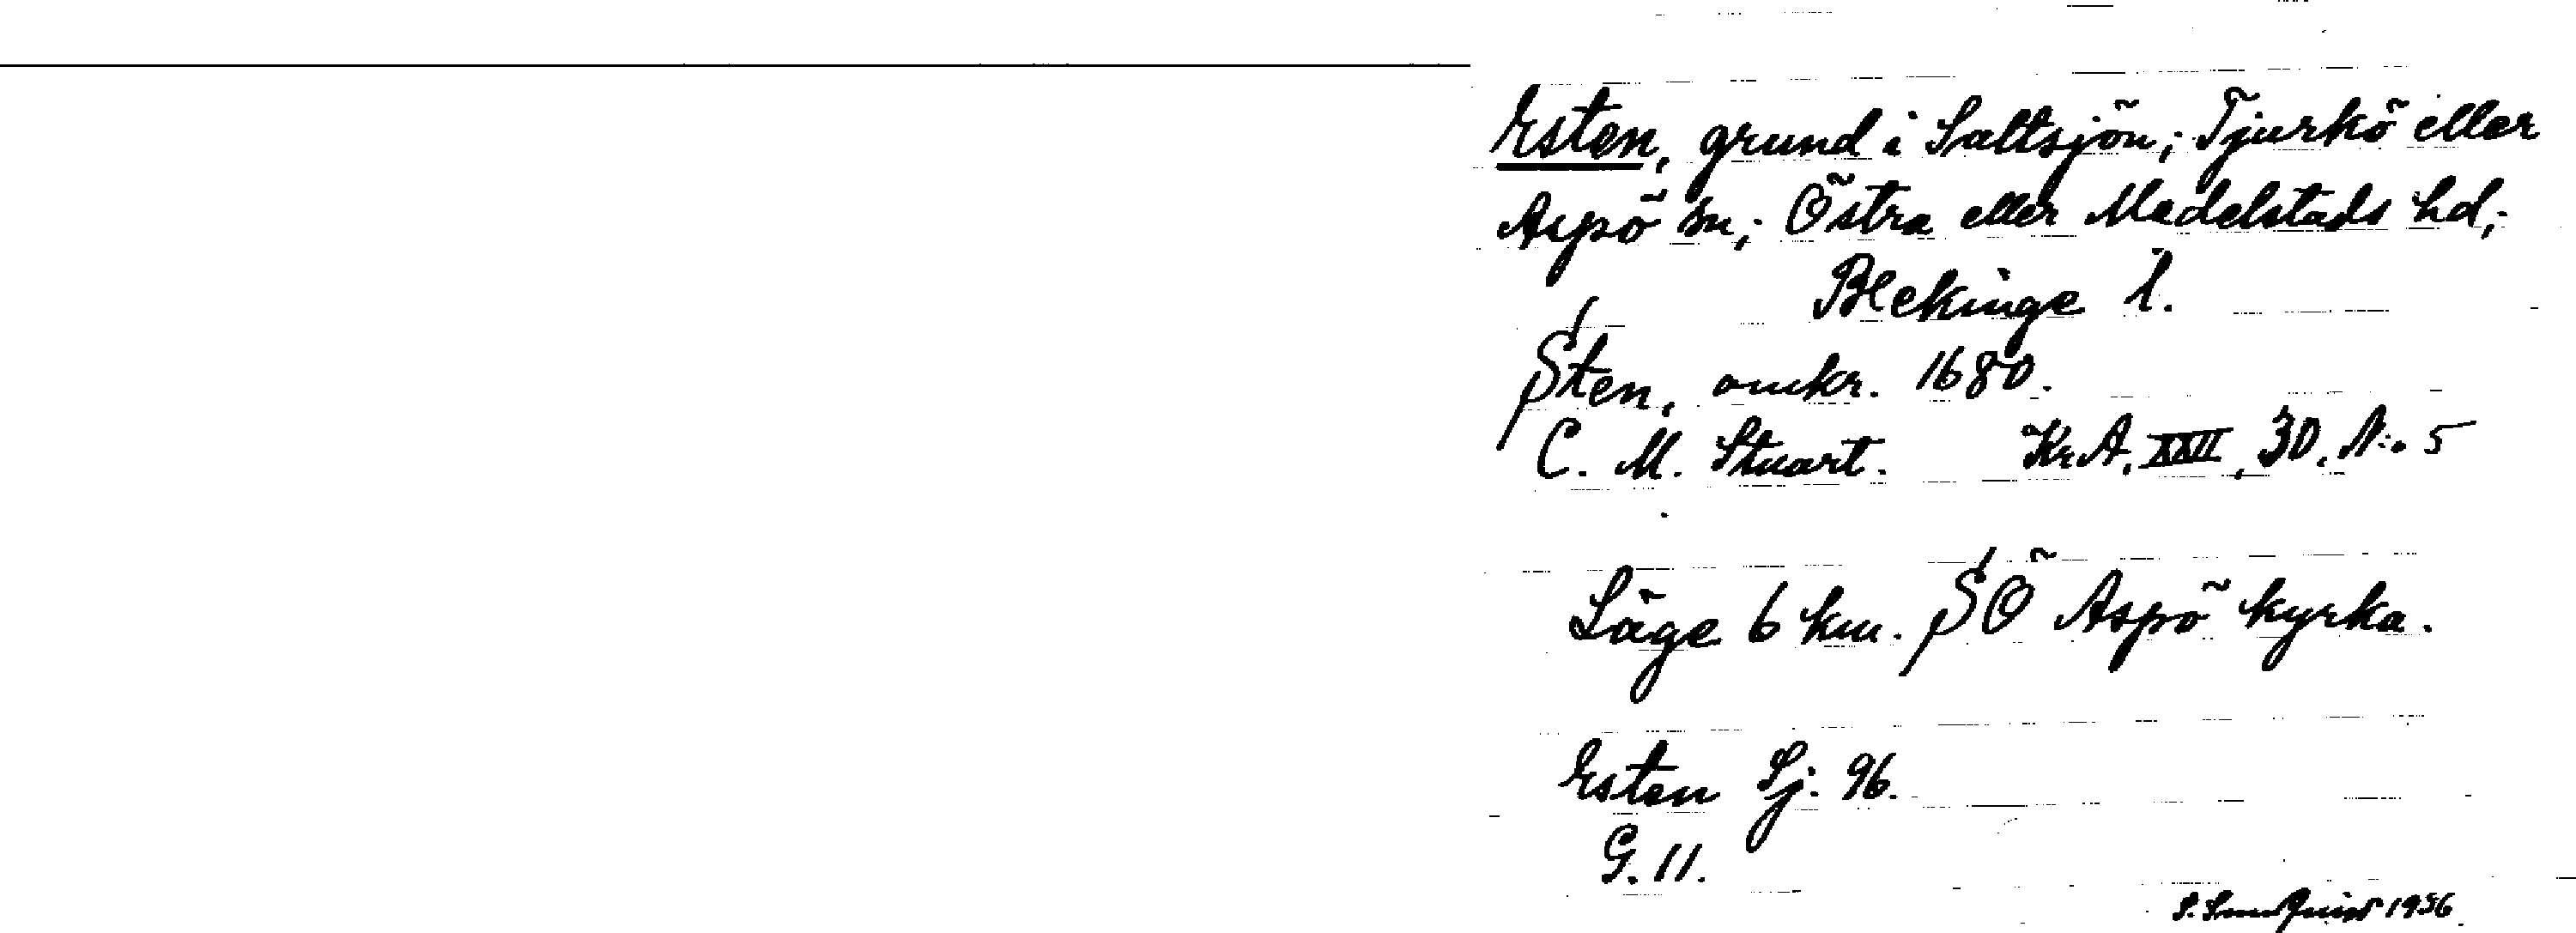 Esten, grund i Saltsjön; Tjurkö eller
Aspö sn; Östra eller Medelstads hd;
Blekinge l.
Sten, omkr. 1680.
C. M. Stuart. Kr A. XXII, 30. N:o 5
Läge 6 km. SÖ Aspö kyrka.
Esten Sj. 96.
G. 11.
1956